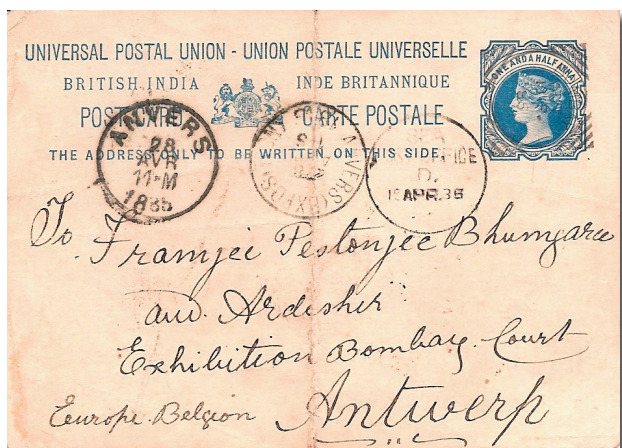 UNIVERSAL POSTAL UNION - UNION POSTALE UNIVERSELLE
BRITISH INDIA INDE BRITANNIQUE
POST CARD CARTE POSTALE
THE ADDRESS ONLY TO BE WRITTEN ON THIS SIDE.
ONE AND A HALF ANNA
ANVERS
28
AVR
11-M
1885
ANVERS
D.
APR.85
To
Framjee Pestonjee Bhumgara
and Ardeshir
Exhibition Bombay Court
Antwerp
Eeurope Belgion